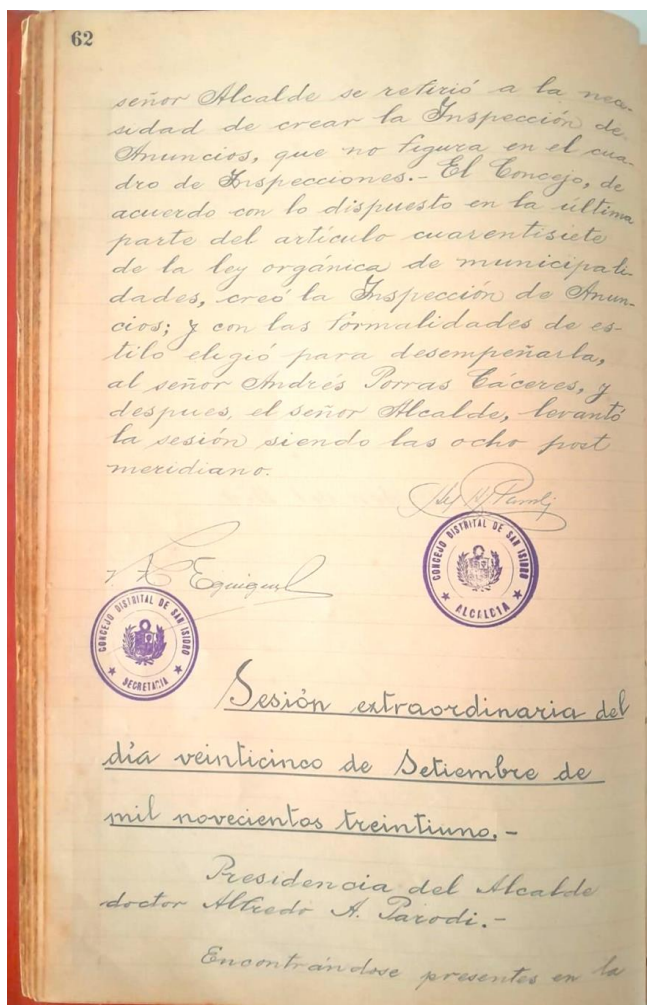 62
señor Alcalde se refirió a la nece-
sidad de crear la Inspección de
Anuncios, que no figura en el cua-
dro de Inspecciones.- El Concejo, de
acuerdo con lo dispuesto en la última
parte del artículo cuarentisiete
de la ley orgánica de municipali-
dades, creó la Inspección de Anun-
cios; y con las formalidades de es-
tilo eligió para desempeñarla,
al señor Andrés Porras Cáceres, y
despues, el señor Alcalde, levantó
la sesión siendo las ocho post
meridiano.
Parodi
CONCEJO DISTRITAL DE SAN ISIDRO
ALCALDIA
CONCEJO DISTRITAL DE SAN ISIDRO
SECRETARIA
Sesión extraordinaria del
día veinticinco de Setiembre de
mil novecientos treintiuno.-
Presidencia del Alcalde
doctor Alfredo A. Parodi.-
Encontrándose presentes en la